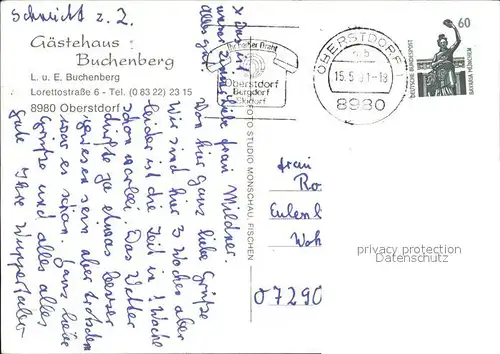 Schmidt z. Z.
Gästehaus
Buchenberg
L. u. E. Buchenberg
Lorettostraße 6 - Tel. (0 83 22) 23 15
8980 Oberstdorf
Liebe Frau Mildner.
Von hier ganz liebe Grüße
Wir sind hier 3 Wochen aber
leider ist die Zeit in 1 Woche
schon vorbei. Das Wetter
dürfte ja etwas besser
gewesen sein aber trotzdem
war es schön. Ganz liebe
Grüße und alles alles
gute Ihre Wuppertaler
x Das ist
unser Zimmer
Alles gute
FOTO STUDIO MONSCHAU, FISCHEN
Ihr heißer Draht
Oberstdorf
Bergdorf
Skidorf
OBERSTDORF 1
15.5.91-18
8980
60
DEUTSCHE BUNDESPOST
BAVARIA MÜNCHEN
Frau
Ro
Eulen
Woh
privacy protection
Datenschutz
07290